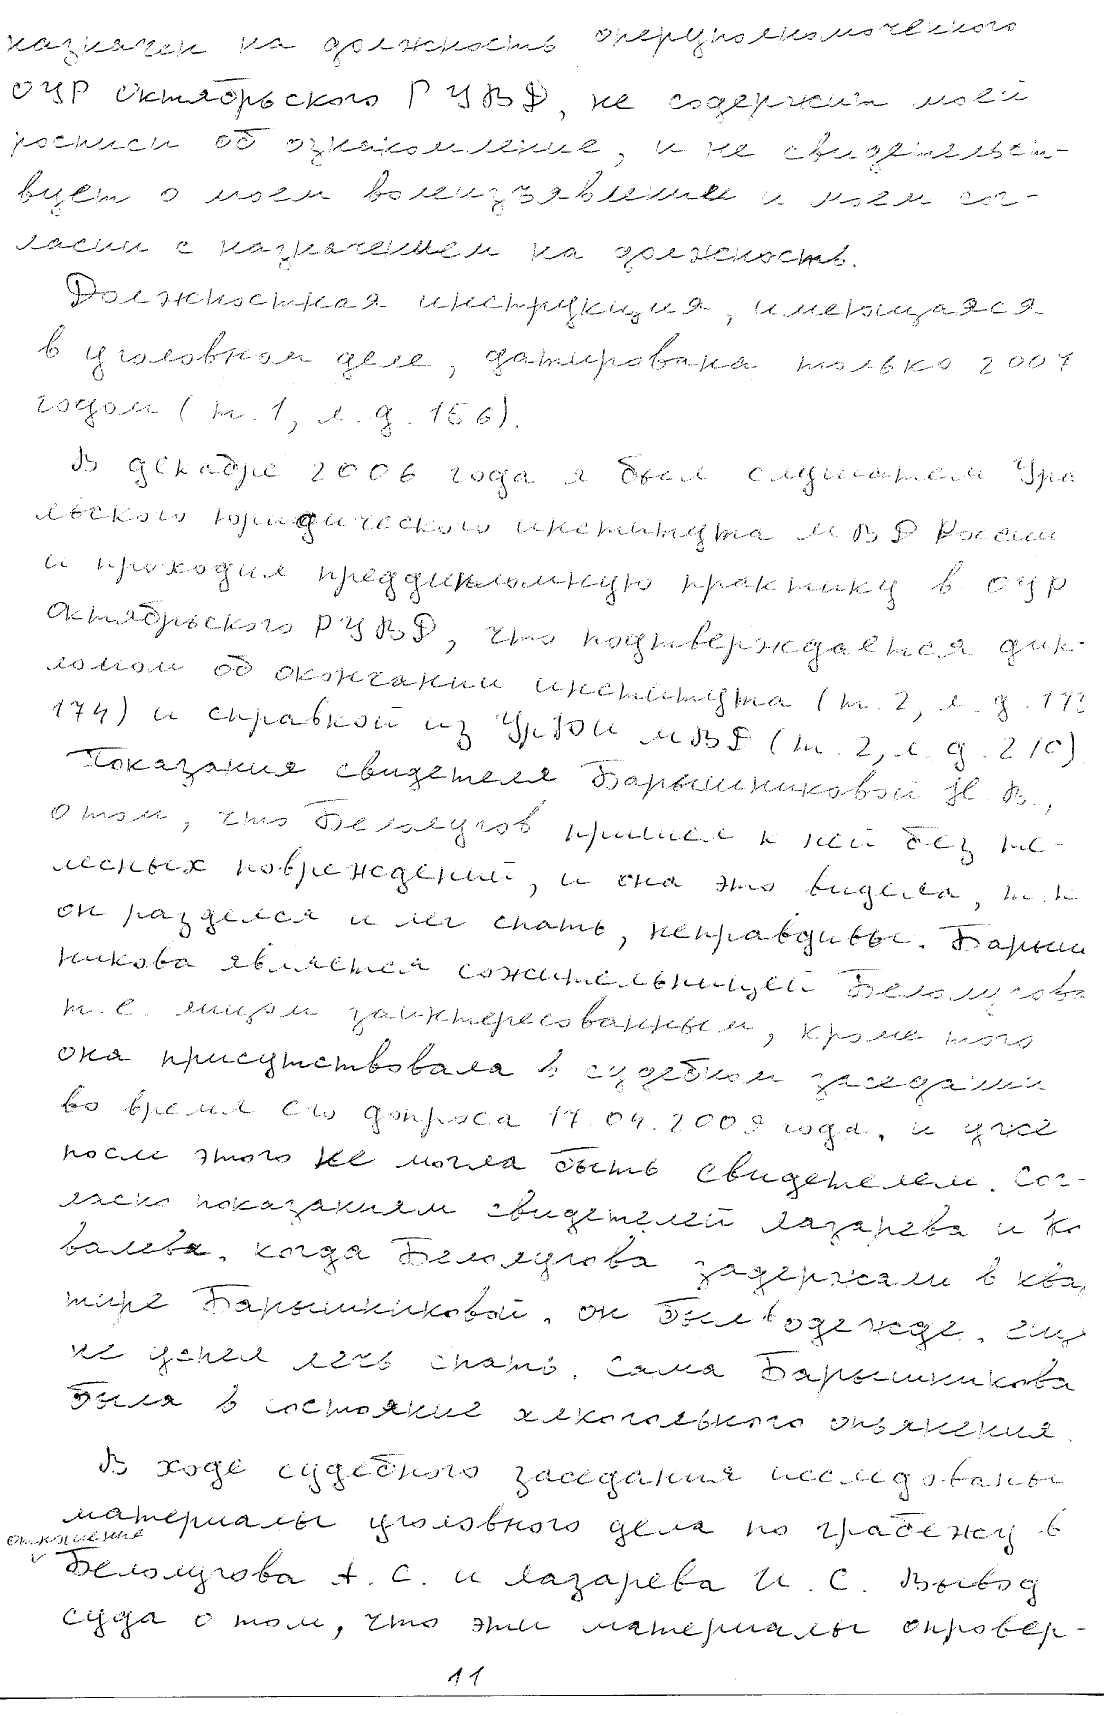 назначен на должность оперуполномоченного
ОУР Октябрьского РУВД, не содержит моей
росписи об ознакомление, и не свидетельст-
вует о моем волеизъявление и моем сог-
ласии с назначением на должность.
Должностная инструкция, имеющаяся
в уголовном деле, датирована только 2007
годом (т.1, л.д.156).
В декабре 2006 года я был слушателем Ура
льского юридического института МВД России
и проходил преддипломную практику в ОУР
Октябрьского РУВД, что подтверждается дип-
ломом об окончании института (т.2, л.д.173
174) и справкой из УрЮИ МВД (т.2, л.д.210)
Показания свидетеля Барышниковой Н.В.,
о том, что Беломугов пришел к ней без те-
лесных повреждений, и она это видела, т.к
он разделся и лег спать, неправдивы. Барыш
никова является сожительницей Беломугова
т.е. лицом заинтересованным, кроме того
она присутствовала в судебном заседании
во время его допроса 17.04.2009 года, и уже
после этого не могла быть свидетелем. Сог-
ласно показаниям свидетелей Лазарева и Ко
валева, когда Беломугова задержали в ква
тире Барышниковой, он был в одежде, ещ
не успел лечь спать. Сама Барышникова
была в состояние алкогольного опьянения.
В ходе судебного заседания исследованы
материалы уголовного дела по грабежу в
отношение
Беломугова А.С. и Лазарева И.С. Вывод
суда о том, что эти материалы опровер-
11